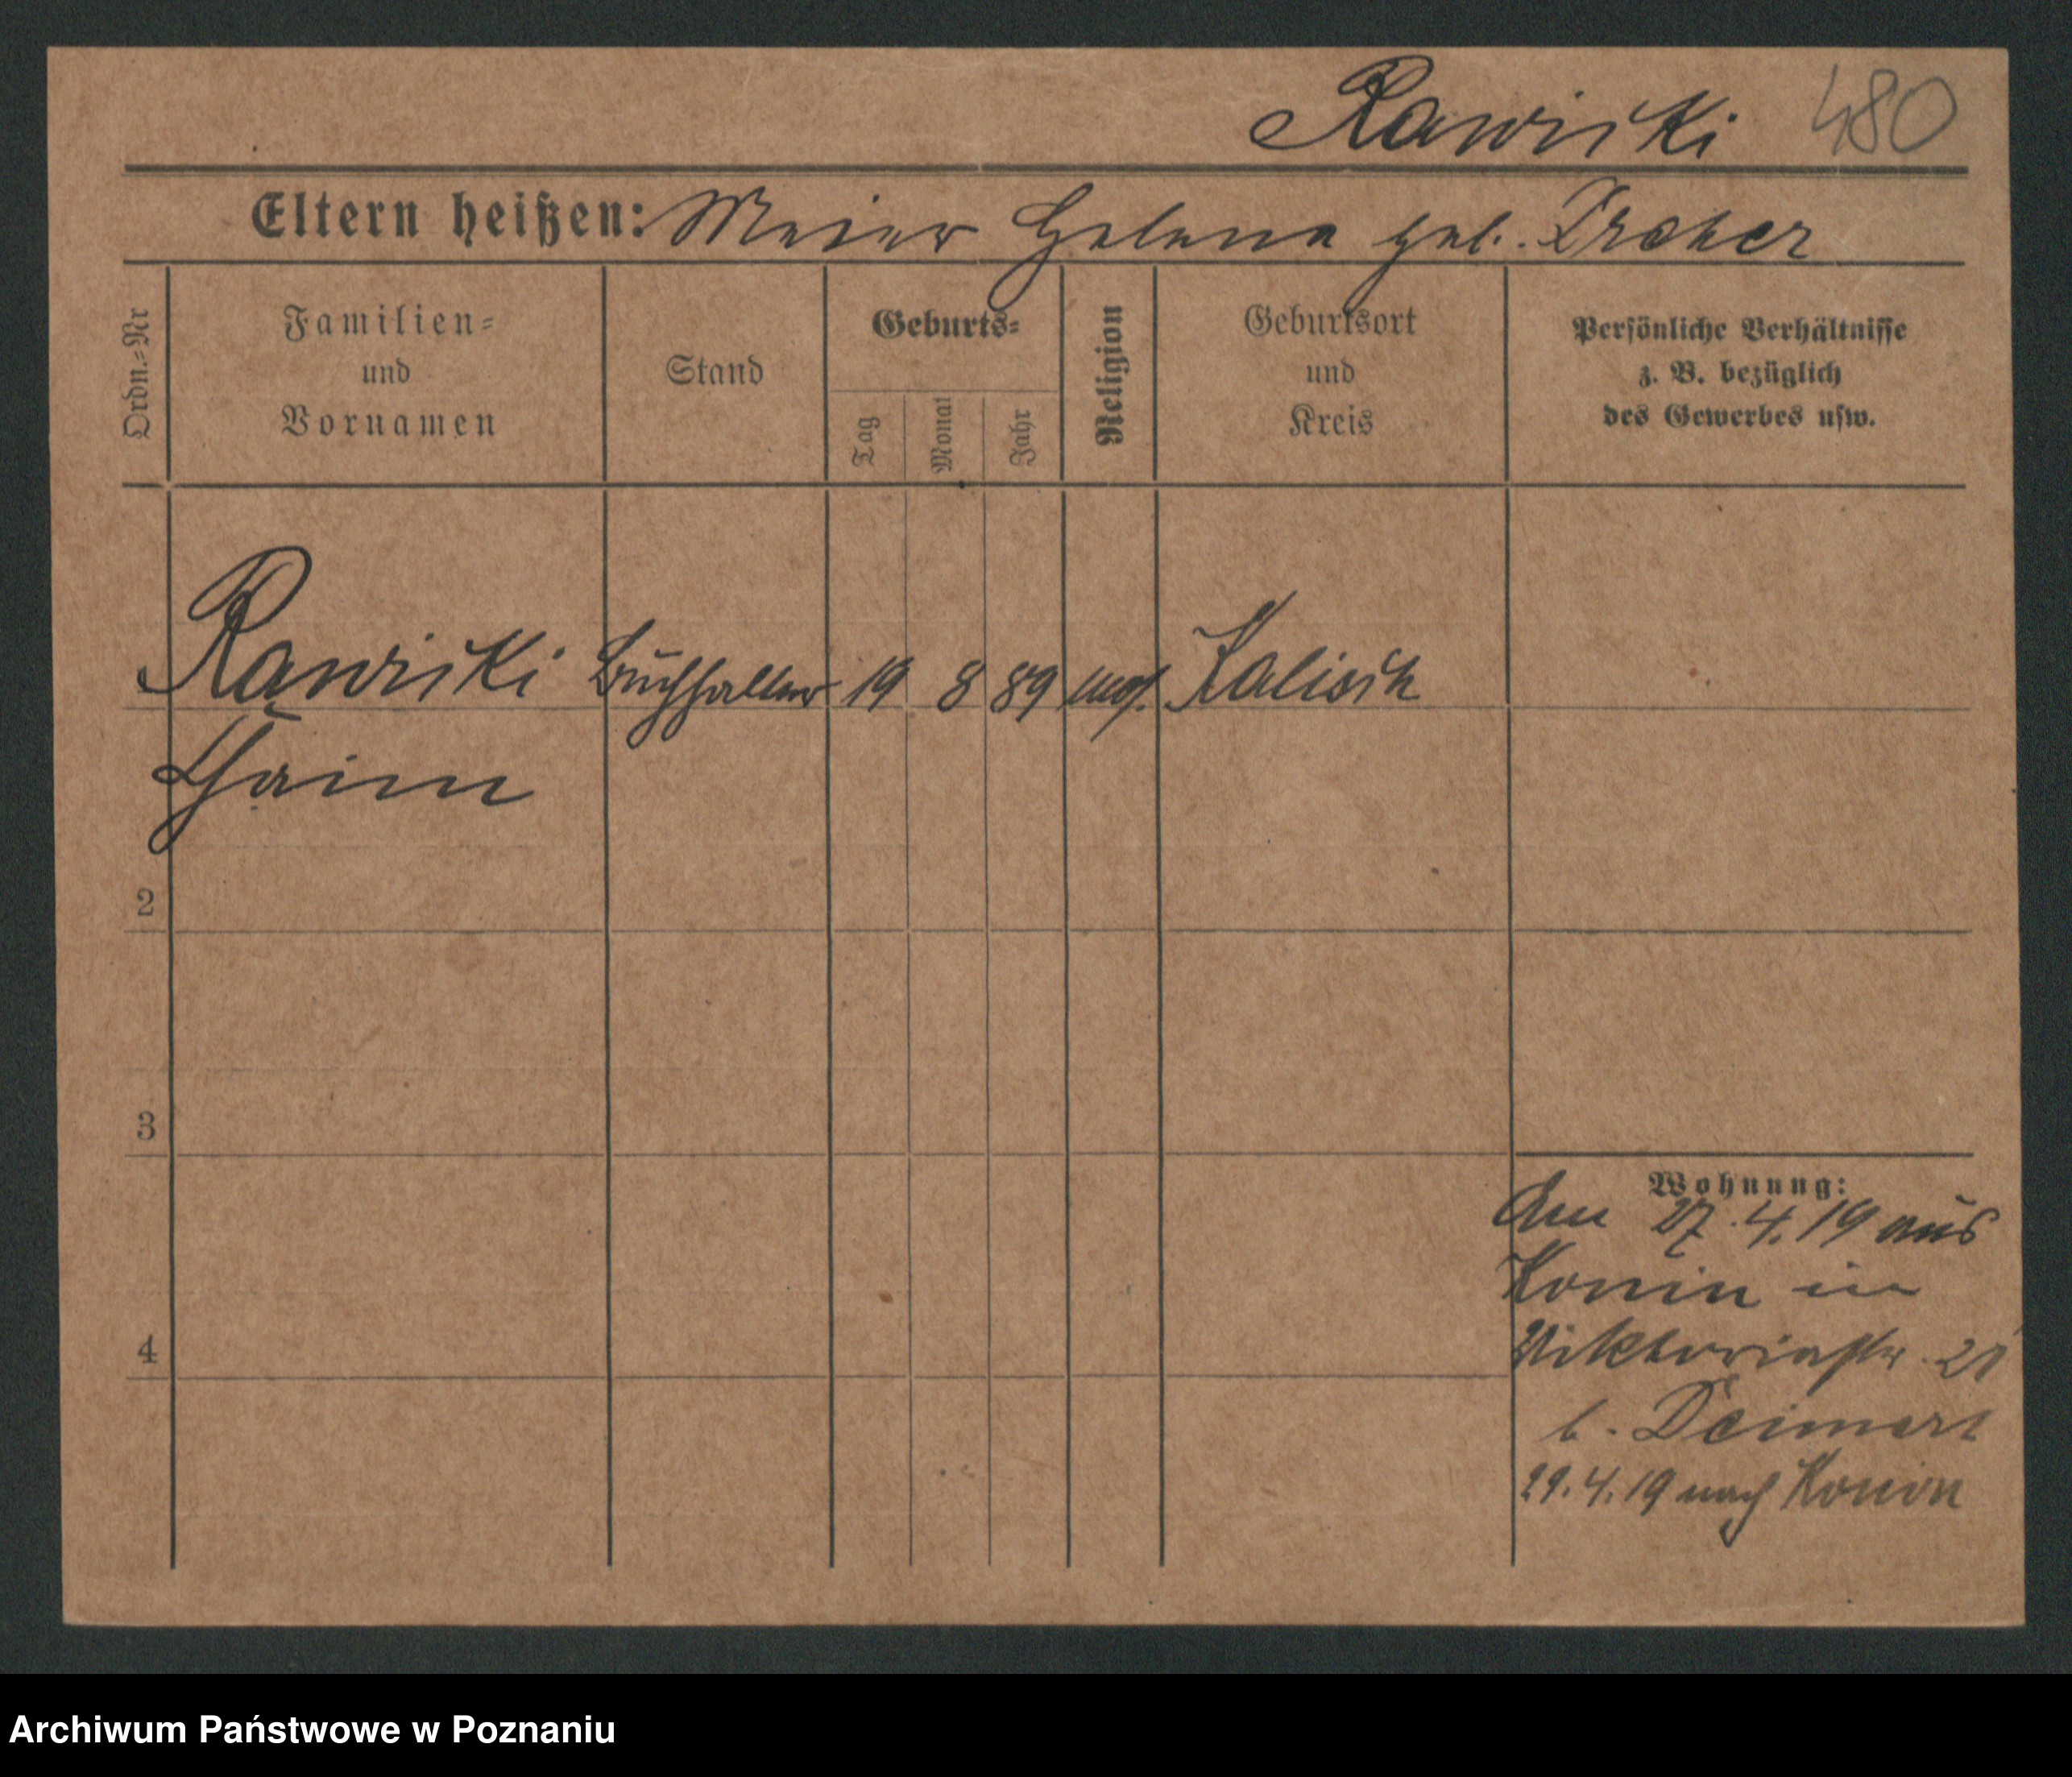 Rawiski 480
Eltern heißen: Meier Helena geb.
Ordn.-Nr
Familien-
und
Vornamen
Stand
Geburts-
Tag
Monat
Jahr
Religion
Geburtsort
und
Kreis
Persönliche Verhältnisse
z. B. bezüglich
des Gewerbes usw.
Rawiski Buchhalter 19 8 89 mos. Kalisch
Chaim
2
3
4
Wohnung:
Am 27.4.19 aus
Konin in
Viktoriastr. 21
b.
29.4.19 nach Konin
Archiwum Państwowe w Poznaniu